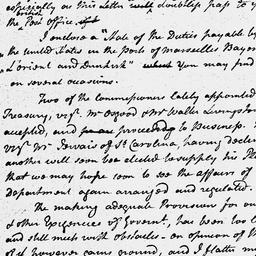 especially as this Letter will doubtless pass to y
the British Post Office.
I enclose a "Note of the Duties payable by
the United States in the Ports of Marseilles Bayon
L'orient and Dunkirk" which you may find
on several occasions.
Two of the Commissioners lately appointed
Treasury, vizt. Mr Osgood & Mr Walter Livingston
accepted, and proceedg to Business. T
vizt. Mr Gervais of So Carolina, having decli
another will soon be elected to supply his Pla
that we may hope soon to see the affairs of
Department again arranged and regulated.
The making adequate Provision for our
& other Exigences of Governt, has been too l
and still meets with obstacles - an opinion of
however gains ground, and I flatter m